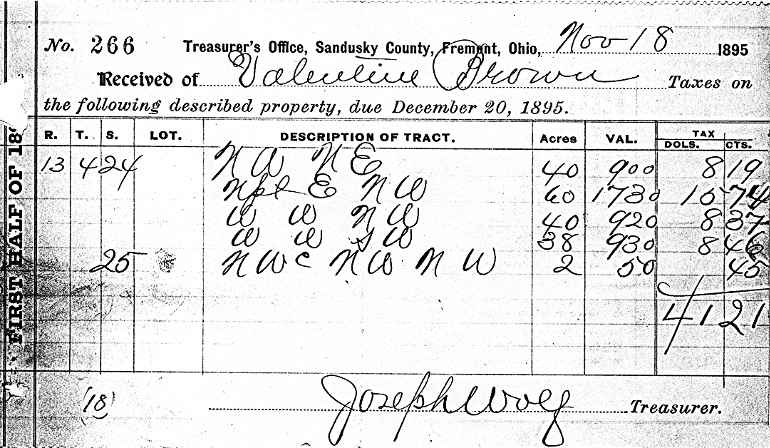 No. 266 Treasurer's Office, Sandusky County, Fremont, Ohio, Nov 18 1895
Received of Valentine Brown Taxes on
the following described property, due December 20, 1895.
R. T. S. LOT. DESCRIPTION OF TRACT. Acres VAL. TAX DOLS. CTS.
13 4 24 N W N E 40 900 8 19
N pt E N W 60 1730 15 74
W W N W 40 920 8 37
W W S W 38 930 8 46
25 N W c N W N W 2 50 45
41 21
FIRST HALF OF 18
(18) Joseph Wolf Treasurer.